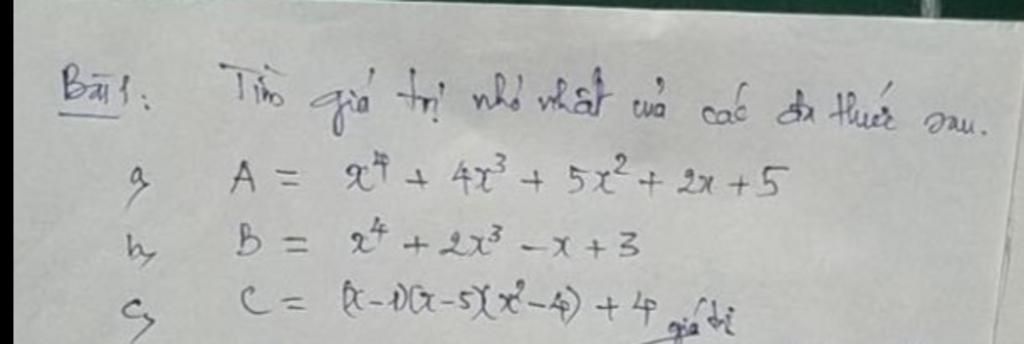 Bài 1: Tìm giá trị nhỏ nhất của các đa thức sau.
a, A = x⁴ + 4x³ + 5x² + 2x + 5
b, B = x⁴ + 2x³ - x + 3
c, C = (x-1)(x-5)(x²-4) + 4
giá trị